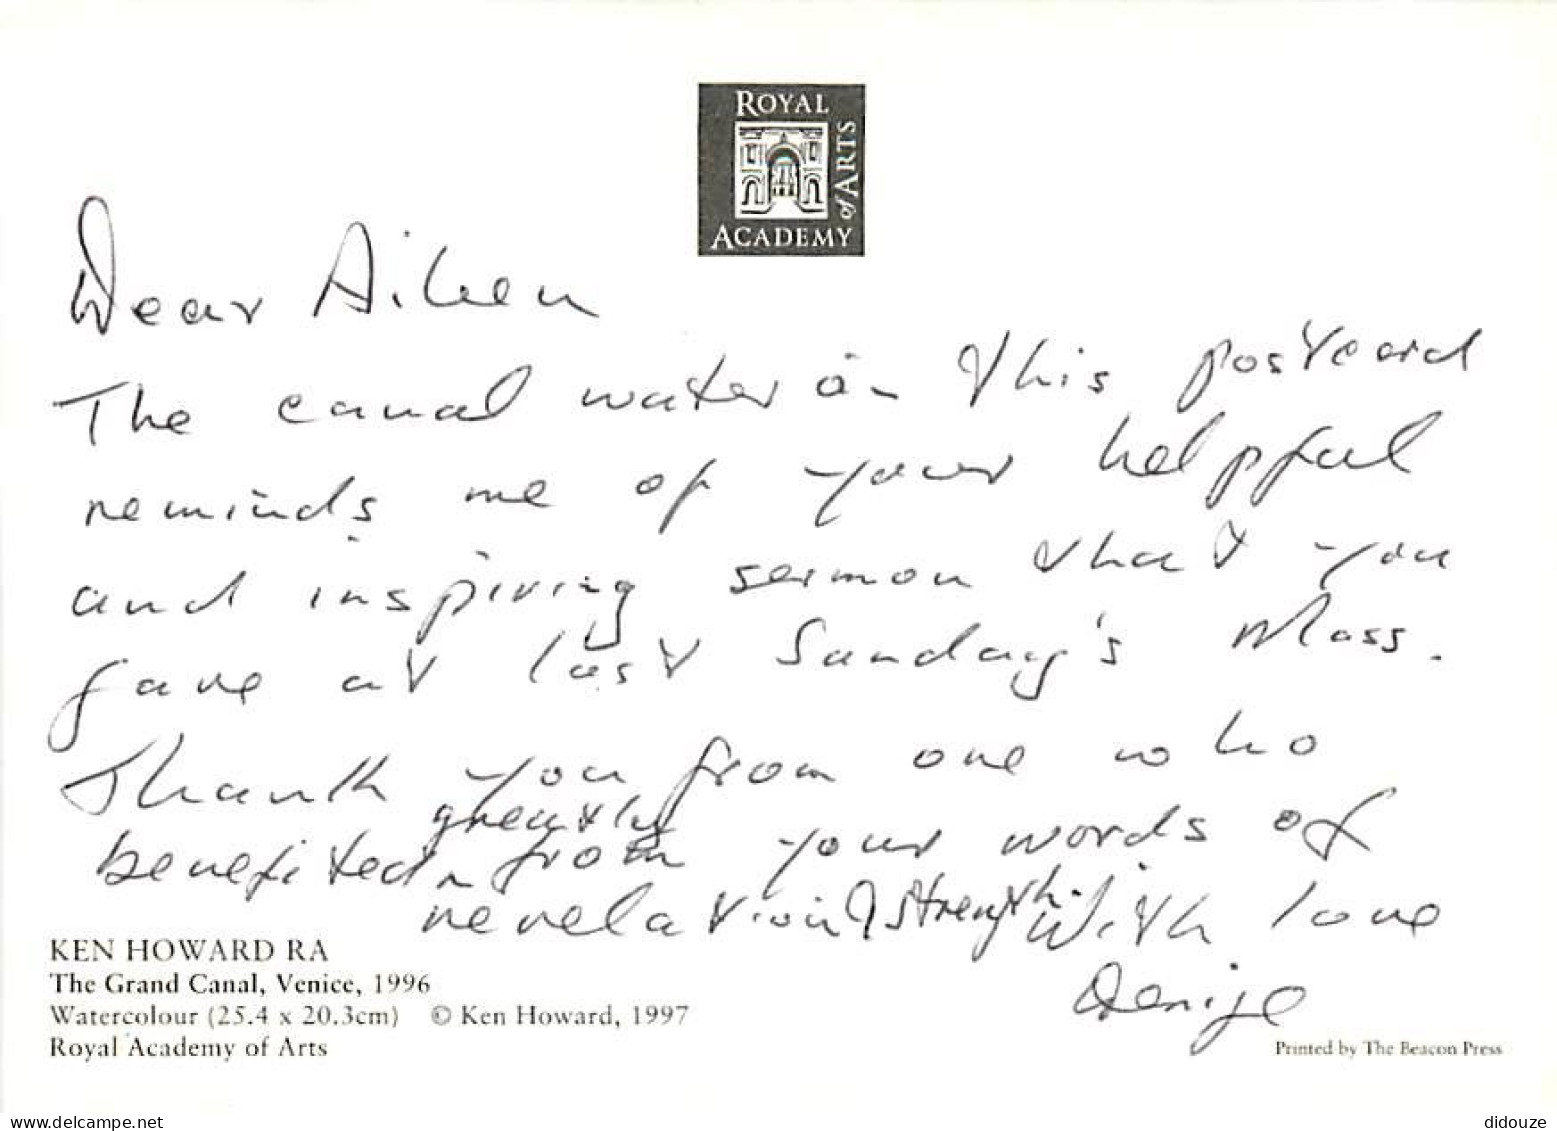 ROYAL
ACADEMY
of ARTS
Dear Aileen
The canal water in this postcard
reminds me of your helpful
and inspiring sermon that you
gave at last Sunday's Mass.
Thank you from one who
benefited greatly from your words of
revelation & strength. With love
KEN HOWARD RA
The Grand Canal, Venice, 1996
Watercolour (25.4 x 20.3cm) © Ken Howard, 1997
Royal Academy of Arts
Printed by The Beacon Press
delcampe.net
didouze